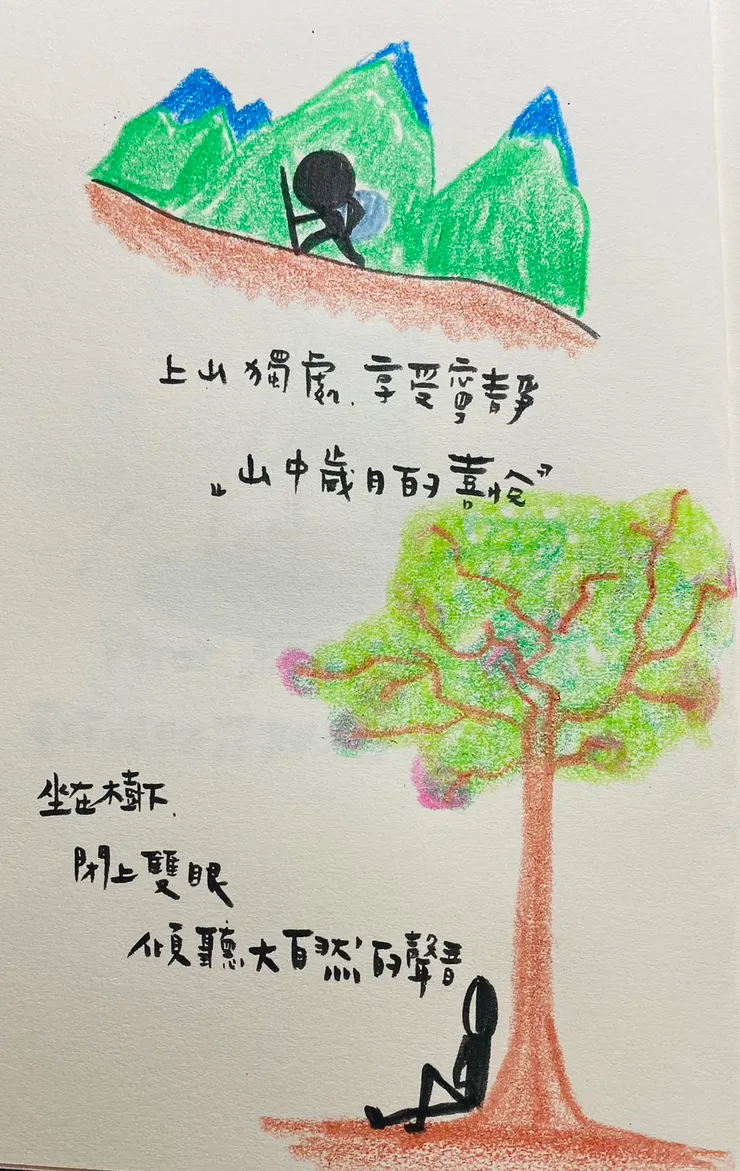 上山獨處,享受寧靜
『山中歲月的喜悅』
坐在樹下,
閉上雙眼
傾聽大自然的聲音